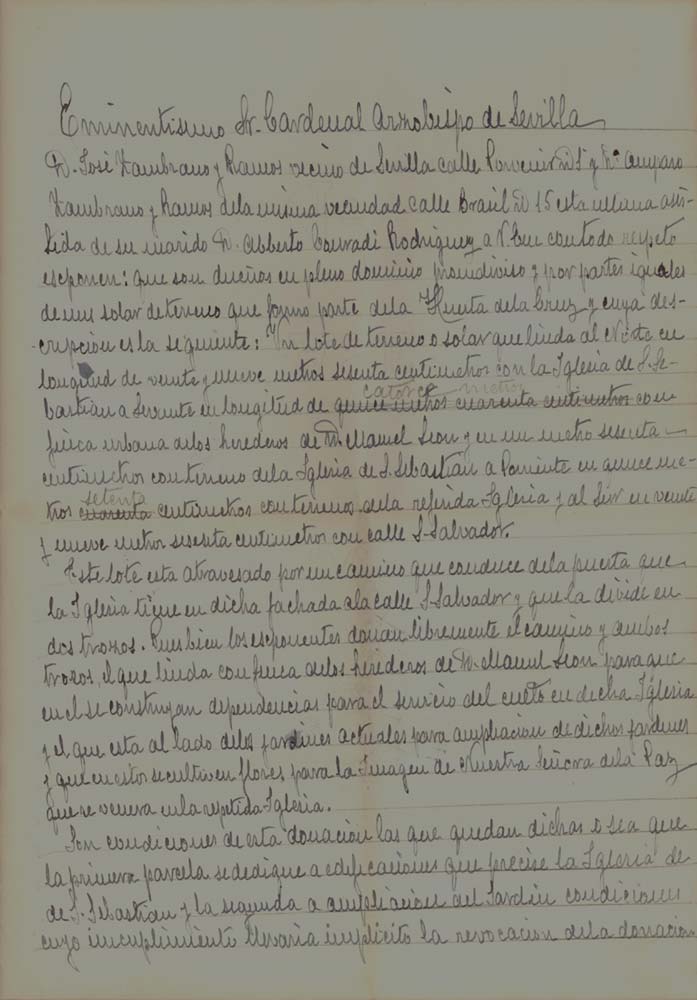 Eminentisimo Sr. Cardenal Arzobispo de Sevilla
D. José Zambrano y Ramos vecino de Sevilla calle Porvenir nº 1 y Dª Amparo
Zambrano y Ramos dela misma vecindad calle Brasil nº 15 esta ultima asis-
tida de su marido D. Alberto Conradi Rodriguez a V. Em con todo respeto
esponen: que son dueños en pleno dominio proindiviso y por partes iguales
de un solar de terreno que formo parte dela Huerta dela Cruz y cuya des-
cripción es la seguiente: Un lote de terreno o solar que linda al Norte en
longitud de veinte y nueve metros sesenta centimetros con la Iglesia de S. Se-
catorce metros
bastian a Levante en longitud de quince metros cuarenta centimetros con
finca urbana delos herederos de D. Manuel Leon y en un metro sesenta
centimetros con terreno dela Iglesia de S. Sebastian a Poniente en quince me-
setenta
tros cuarenta centimetros con terrenos dela referida Iglesia y al Sur en veinte
y nueve metros sesenta centimetros con calle S. Salvador.
Este lote esta atravesado por un camino que conduce dela puerta que
la Iglesia tiene en dicha fachada ala calle S. Salvador y que la divide en
dos trozos. Pues bien los esponentes donan libremente el camino y ambos
trozos, el que linda con finca delos herederos de D. Manuel Leon para que
en el se construyan dependencias para el servicio del culto en dicha Iglesia
y el que esta al lado delos jardines actuales para ampliacion de dichos jardines
y que en estos se cultiven flores para la Imagen de Nuestra Señora dela Paz
que se venera en la repetida Iglesia.
Son condiciones de esta donacion las que quedan dichas o sea que
la primera parcela se dedique a edificaciones que precise la Iglesia de
de S. Sebastian y la segunda a ampliacion del Jardin condiciones
cuyo incumplimiento llevaria implicito la revocacion dela donacion